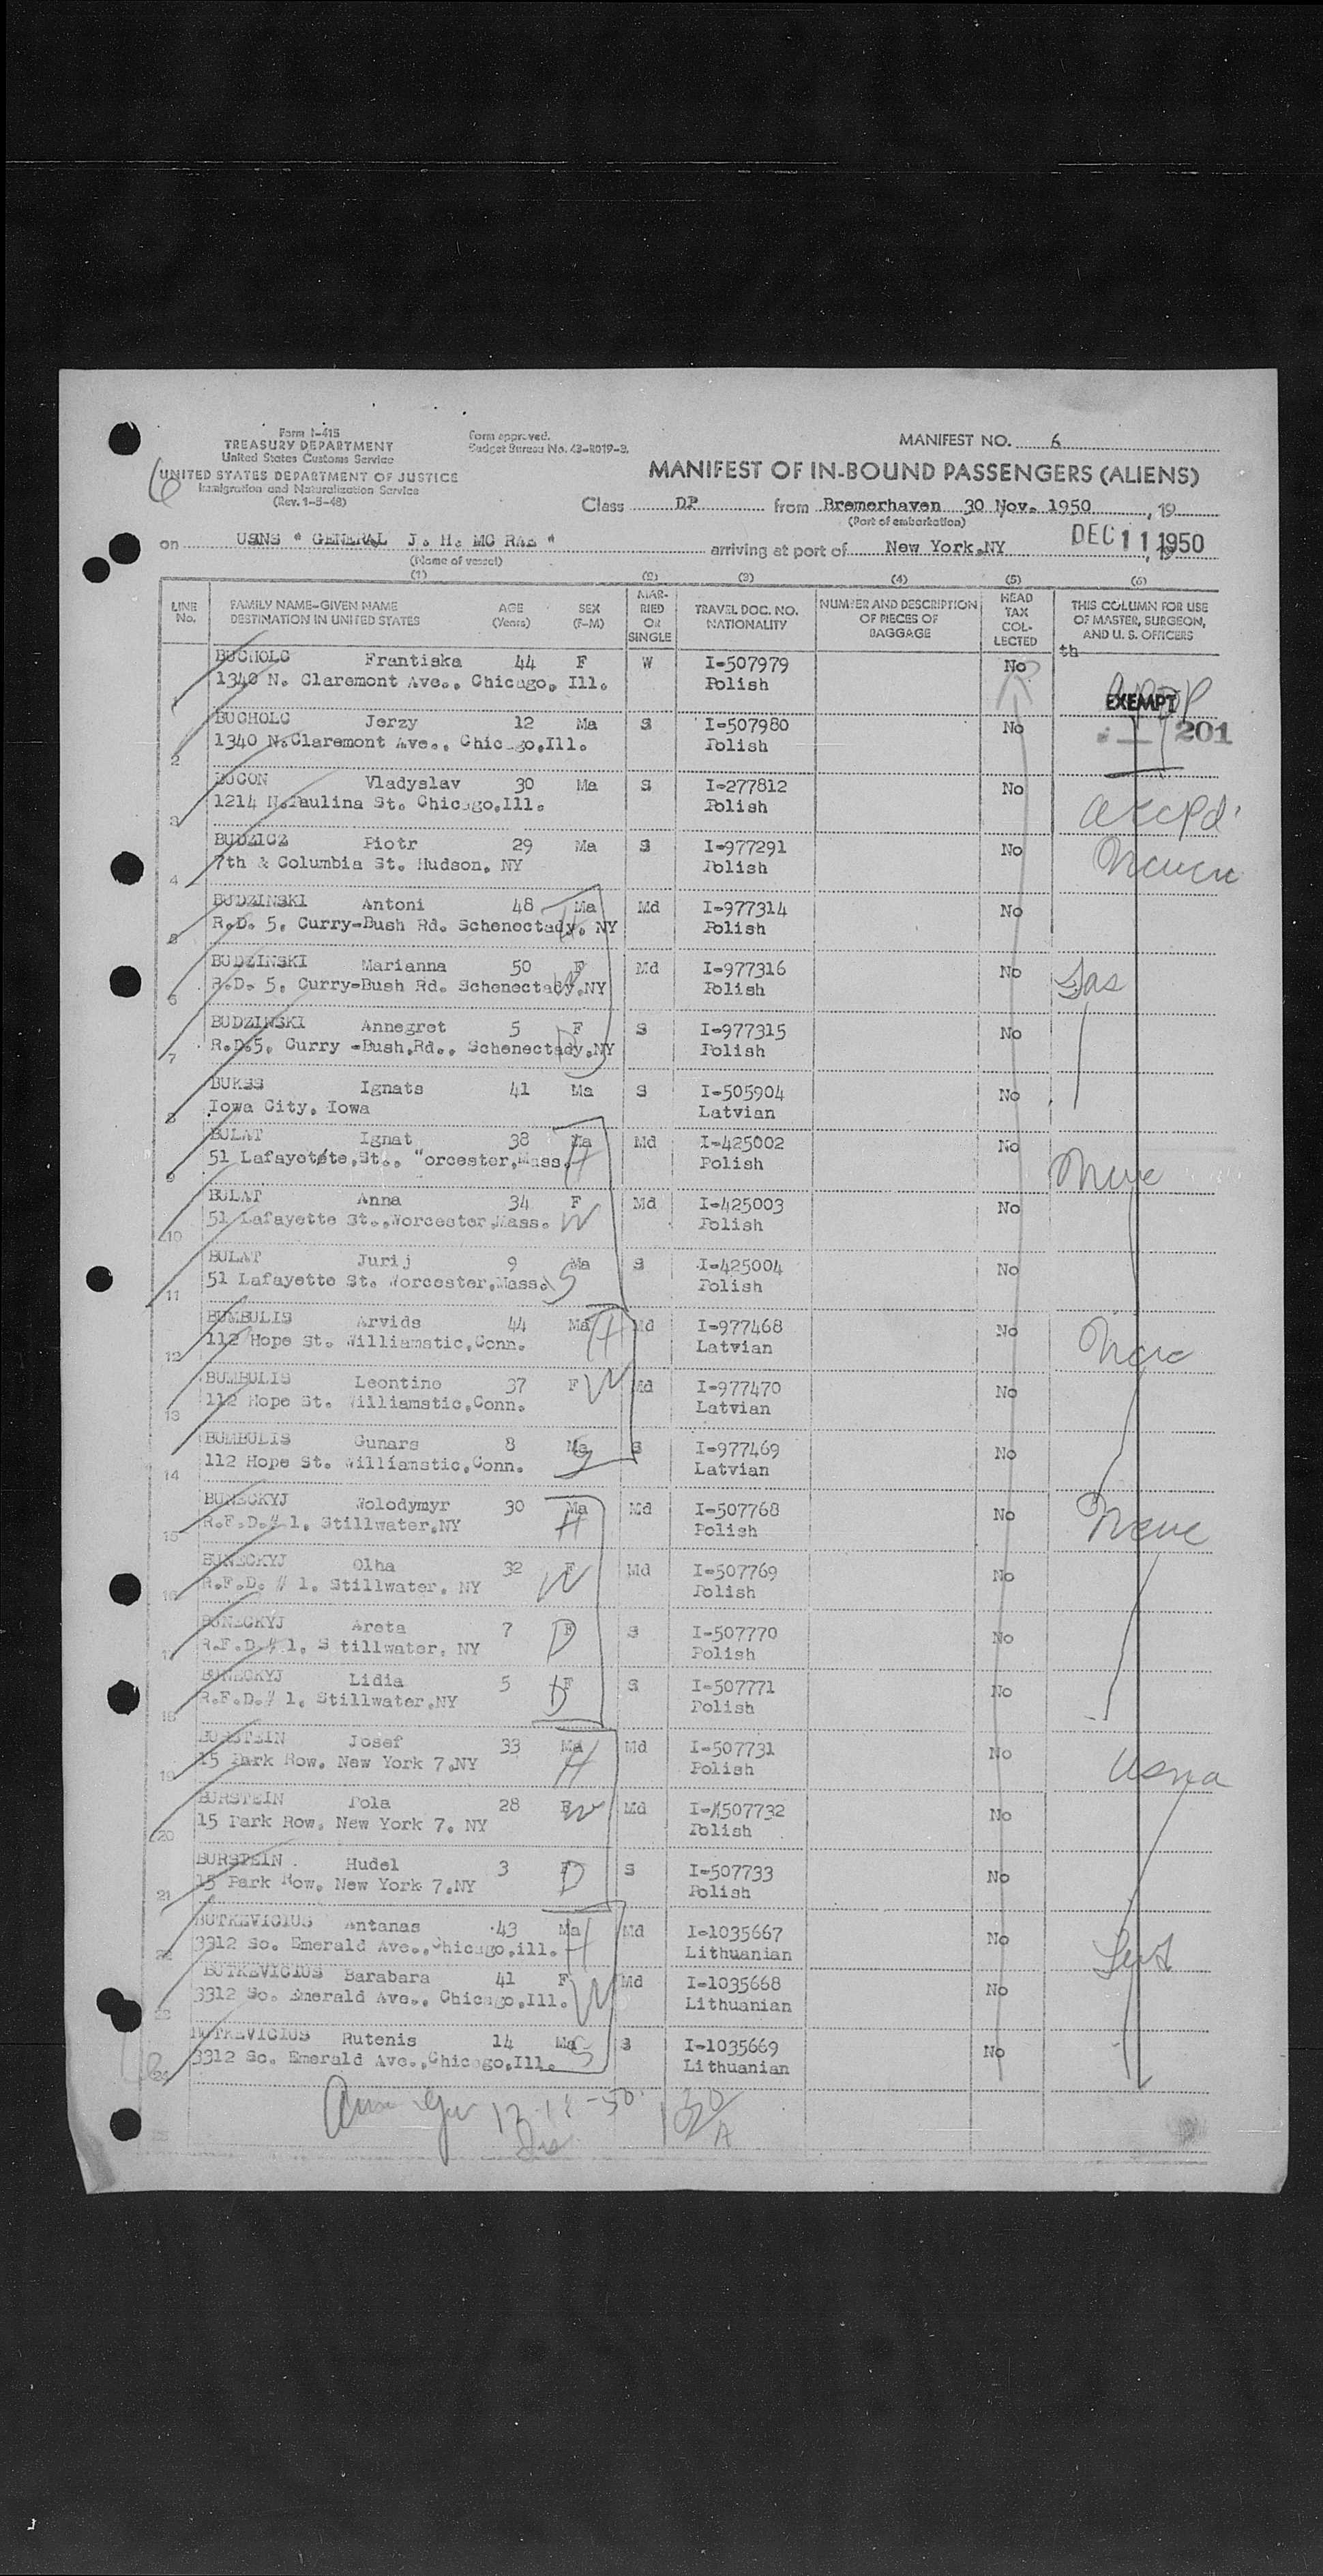 Form I-415
TREASURY DEPARTMENT
United States Customs Service
UNITED STATES DEPARTMENT OF JUSTICE
Immigration and Naturalization Service
(Rev. 1-5-48)
6
Form approved.
Budget Bureau No. 43-R019-3.
MANIFEST NO. 6
MANIFEST OF IN-BOUND PASSENGERS (ALIENS)
Class DP from Bremerhaven 30 Nov. 1950, 19
(Port of embarkation)
on USNS " GENERAL J. H. MC RAE " arriving at port of New York,NY DEC 11 1950, 19
(Name of vessel)
(1) (2) (3) (4) (5) (6)
LINE No. FAMILY NAME-GIVEN NAME DESTINATION IN UNITED STATES AGE (Years) SEX (F-M) MAR-RIED OR SINGLE TRAVEL DOC. NO. NATIONALITY NUMBER AND DESCRIPTION OF PIECES OF BAGGAGE HEAD TAX COL-LECTED THIS COLUMN FOR USE OF MASTER, SURGEON, AND U. S. OFFICERS
th
1 BUCHOLC Frantiska 44 F W I-507979 No
1340 N. Claremont Ave., Chicago, Ill. Polish
EXEMPT
201
2 BUCHOLC Jerzy 12 Ma S I-507980 No
1340 N.Claremont Ave., Chicago,Ill. Polish
3 BUCON Vladyslav 30 Ma S I-277812 No
1214 N.Paulina St. Chicago,Ill. Polish
4 BUDZICZ Piotr 29 Ma S I-977291 No
7th & Columbia St. Hudson, NY Polish
5 BUDZINSKI Antoni 48 Ma Md I-977314 No
R.D. 5, Curry-Bush Rd. Schenectady, NY Polish
6 BUDZINSKI Marianna 50 F Md I-977316 No
R.D. 5, Curry-Bush Rd. Schenectady,NY Polish
7 BUDZINSKI Annegret 5 F S I-977315 No
R.D.5, Curry -Bush,Rd., Schenectady,NY Polish
8 BUKSS Ignats 41 Ma S I-505904 No
Iowa City, Iowa Latvian
9 BULAT Ignat 38 Ma Md I-425002 No
51 Lafayetete,St., "orcester,Mass. H Polish
10 BULAT Anna 34 F Md I-425003 No
51 Lafayette St.,Worcester,Mass. W Polish
11 BULAT Jurij 9 Ma S I-425004 No
51 Lafayette St. Worcester,Mass. S Polish
12 BUMBULIS Arvids 44 Ma H Md I-977468 No
112 Hope St. Williamstic,Conn. Latvian
13 BUMBULIS Leontine 37 F W Md I-977470 No
112 Hope St. Williamstic,Conn. Latvian
14 BUMBULIS Gunars 8 Ma S S I-977469 No
112 Hope St. Williamstic,Conn. Latvian
15 BUNECKYJ Wolodymyr 30 Ma Md I-507768 No
R.F.D.# 1, Stillwater,NY H Polish
16 BUNECKYJ Olha 32 F Md I-507769 No
R.F.D. # 1, Stillwater, NY W Polish
17 BUNECKYJ Areta 7 F S I-507770 No
R.F.D.# 1, S tillwater, NY D Polish
18 BUNECKYJ Lidia 5 F S I-507771 No
R.F.D.# 1, Stillwater,NY D Polish
19 BURSTEIN Josef 33 Ma Md I-507731 No
15 Park Row, New York 7,NY H Polish
20 BURSTEIN Pola 28 F W Md I-507732 No
15 Park Row, New York 7, NY Polish
21 BURSTEIN Hudel 3 F S I-507733 No
15 Park Row, New York 7,NY D Polish
22 BUTKEVICIUS Antanas 43 Ma Md I-1035667 No
3312 So. Emerald Ave.,Chicago,ill. H Lithuanian
23 BUTKEVICIUS Barabara 41 F Md I-1035668 No
3312 So. Emerald Ave., Chicago,Ill. W Lithuanian
24 BUTKEVICIUS Rutenis 14 Ma S S I-1035669 No
3312 So. Emerald Ave.,Chicago,Ill. Lithuanian